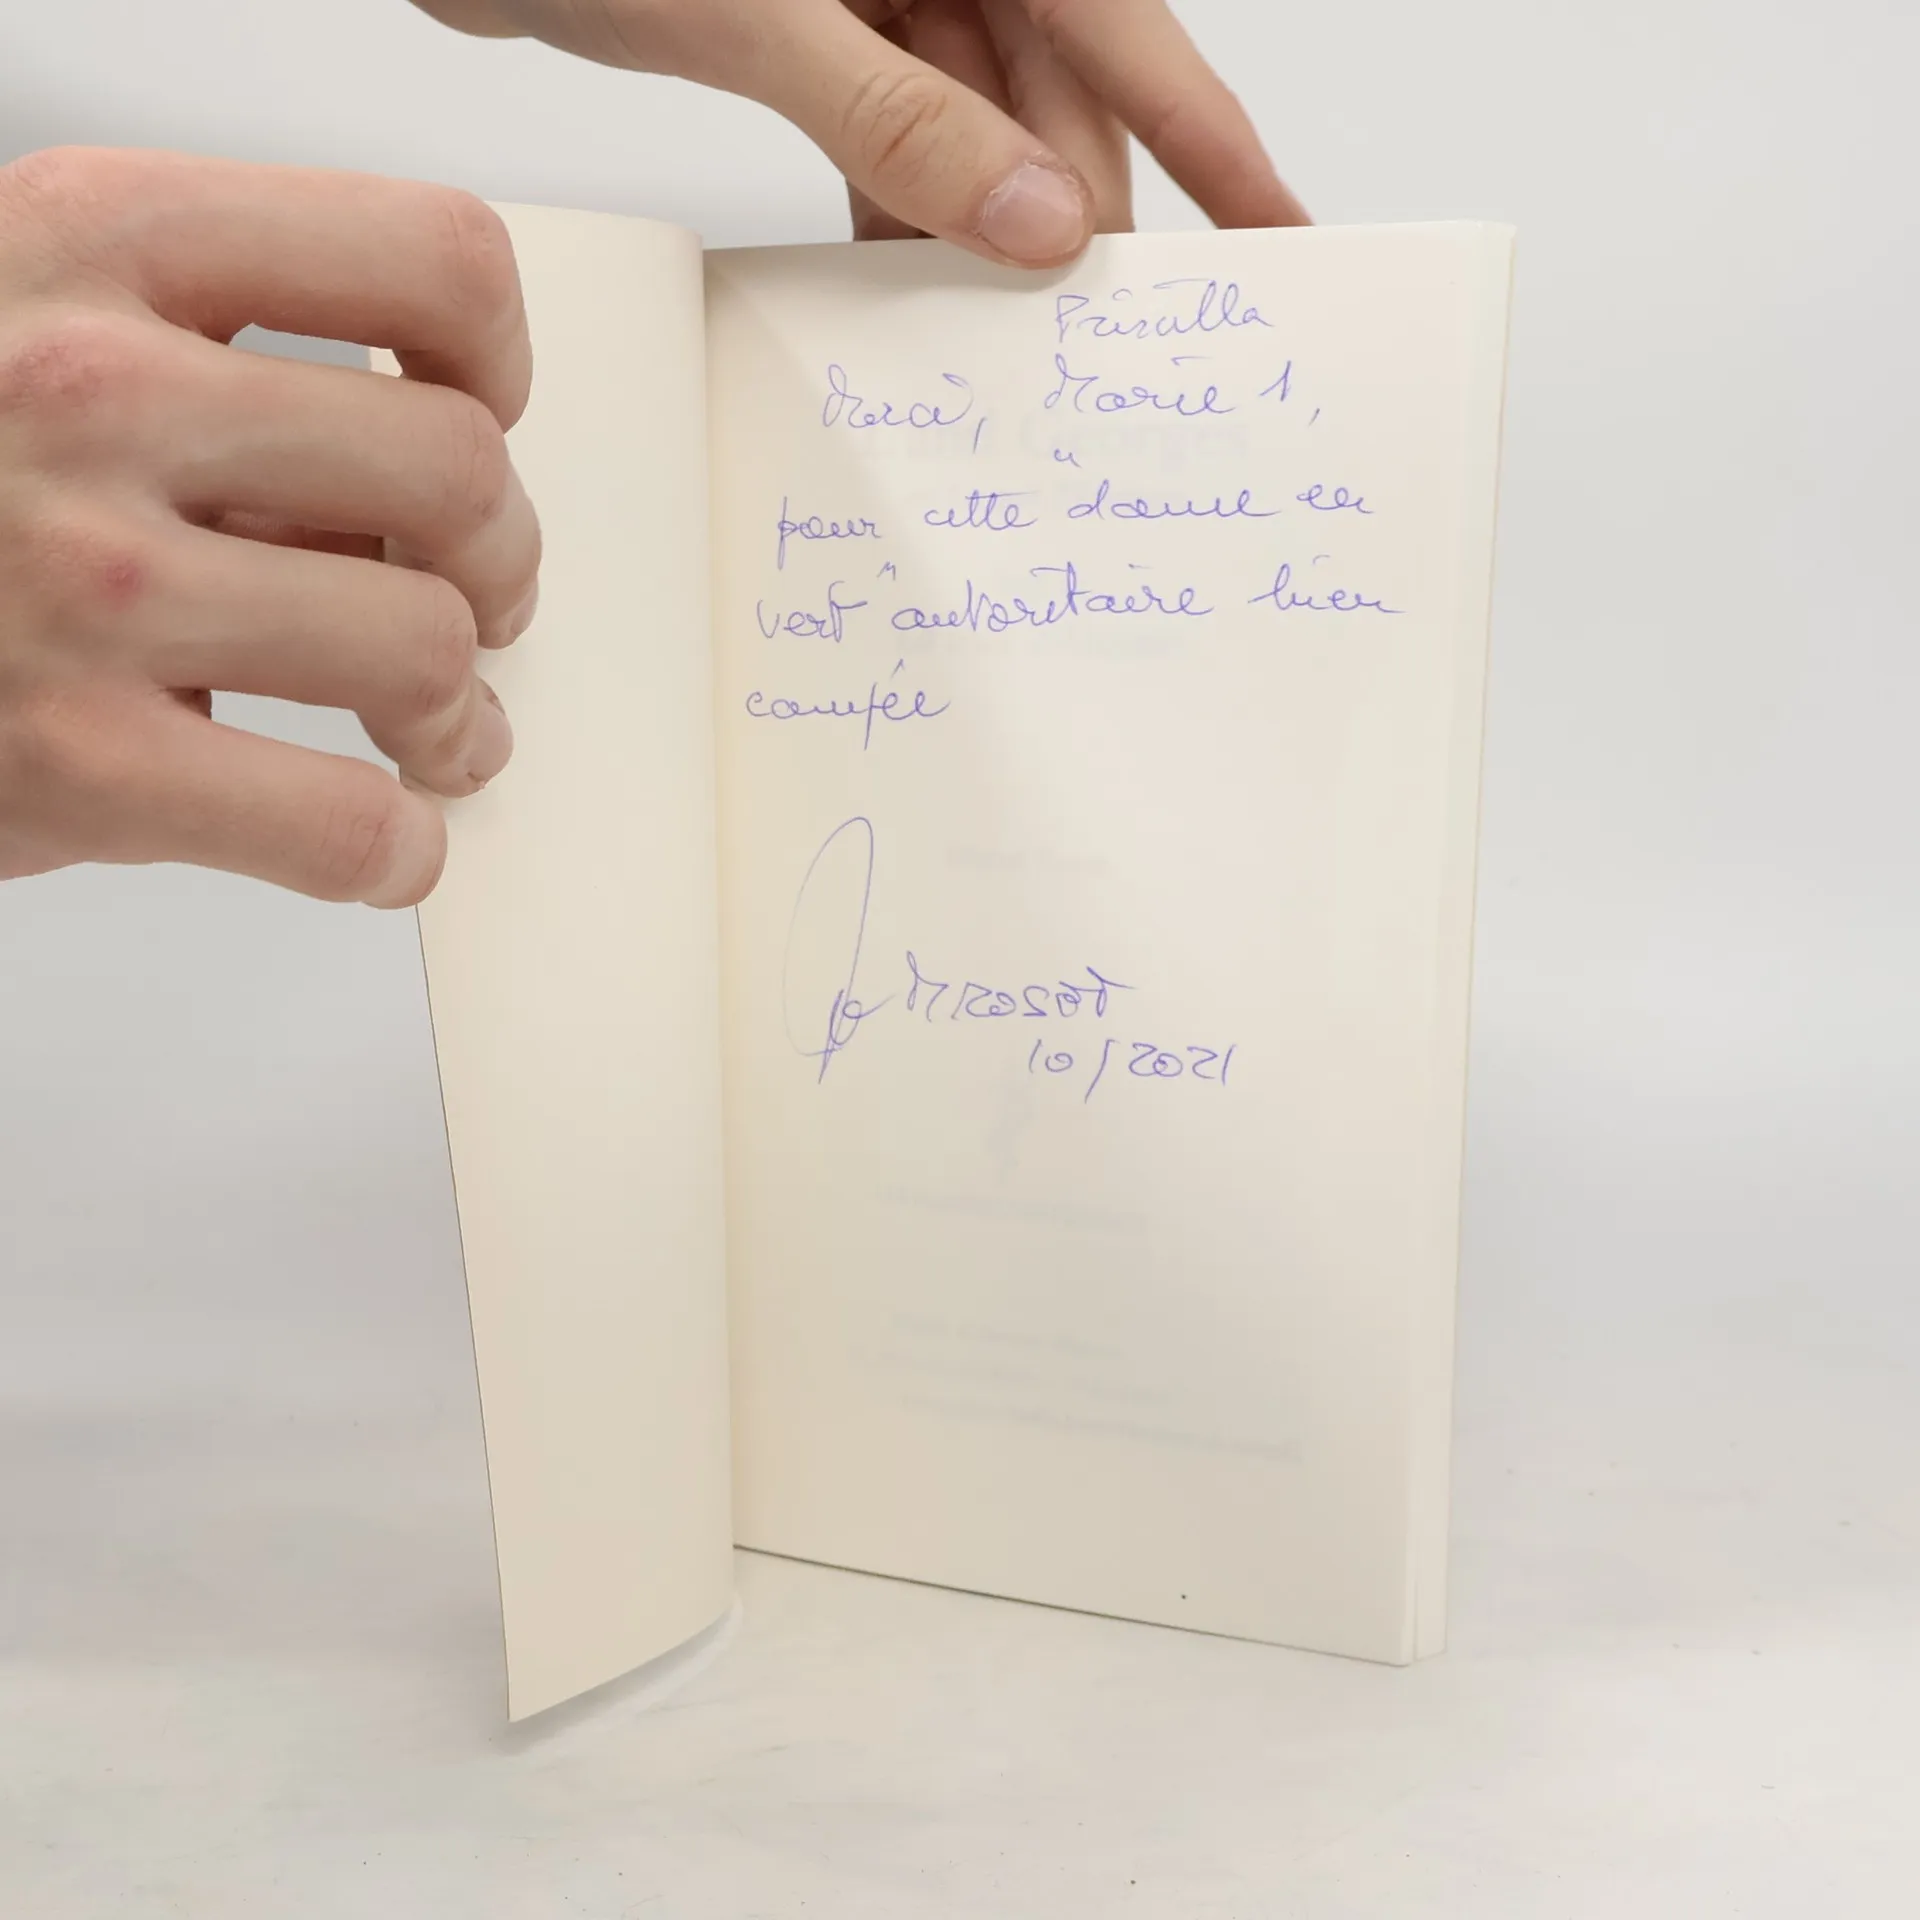 Priscilla
Merci, Marie 1,
pour cette dame en
vert "autoritaire bien
campée
10/2021